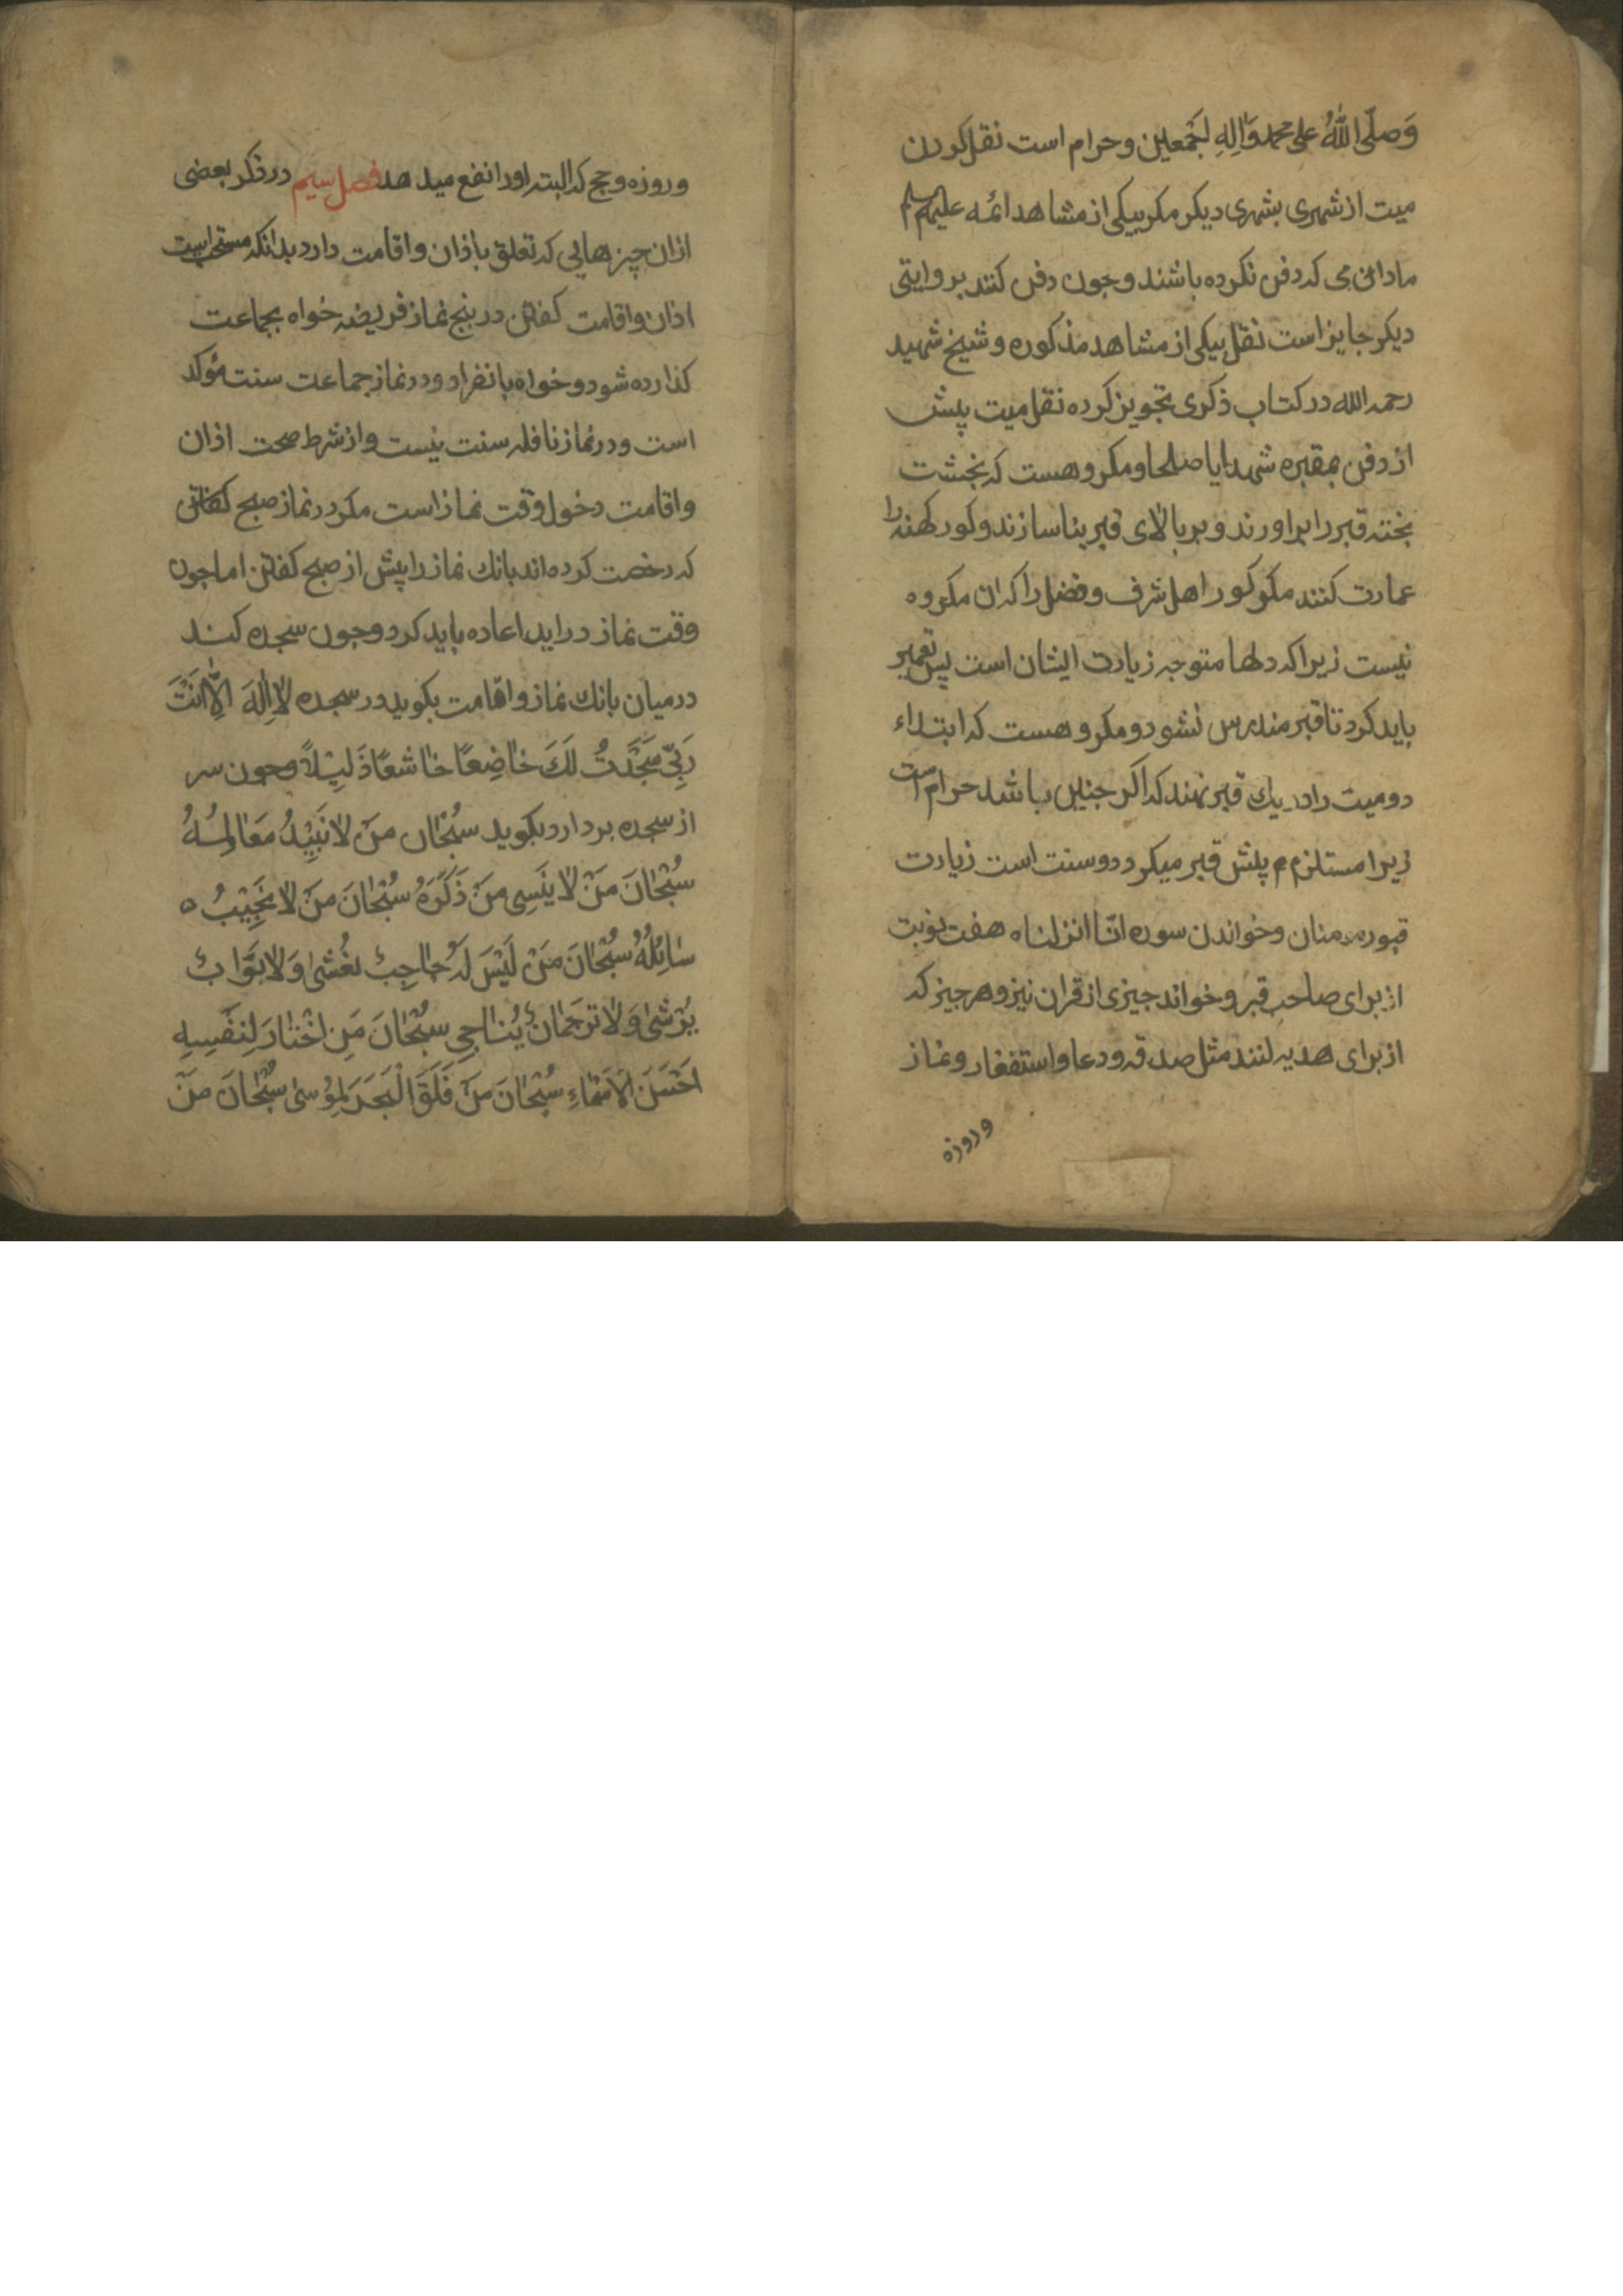 وَصلّی اللهُ علی محمد وَاٰلِهِ اجَمعین و حرام است نقل کردن
میت از شهری بشهری دیکر مکر بیکی از مشاهد ائمه علیهم
مادامی که دفن نکرده باشند و جون دفن کنند بروایتی
دیکر جایز است نقل بیکی از مشاهد مذکوره و شیخ شهید
رحمه الله در کتاب ذکری تجویز کرده نقل میت پیش
از دفن بمقبره شهدا یا صلحا و مکروهست که بخشت
بخته قبر را براورند و بر بالای قبر بنا سازند و کور کهنه را
عمارت کنند مکر کور اهل شرف و فضل را که ان مکروه
نیست زیرا که دلها متوجه زیارت ایشان است پس تعمیر
باید کرد تا قبر مندرس نشود و مکروهست که ابتداء
دو میت را در یك قبر نهند که اکر جنین باشد حرام است
زیرا مستلزم پیش قبر میکردد و سنت است زیارت
قبور مومنان و خواندن سوره انّا انزلناه هفت نوبت
از برای صاحب قبر و خواند جیزی از قران نیز و هر جیز که
از برای هدیه کنند مثل صدقه و دعا و استغفار و نماز
و روزه
و روزه و حج که البته او را نفع میدهد فصل سیم در ذکر بعضی
ازان چیزهایی که تعلق باذان و اقامت دارد بدانکه مستحب است
اذان و اقامت کفتن در پنج نماز فریضه خواه بجماعت
کذارده شود و خواه بانفراد و در نماز جماعت سنت مؤکد
است و در نماز نافله سنت نیست و از شرط صحت اذان
و اقامت دخول وقت نماز است مکر در نماز صبح کفتن
که رخصت کرده اند بانك نماز را پیش از صبح کفتن اما جون
وقت نماز دراید اعاده باید کرد و جون سجده کند
در میان بانك نماز و اقامت بکوید در سجده لا اِلٰهَ اِلاّ اَنْتَ
رَبّی سَجَدْتُ لَكَ خاضِعًا خاشعًا ذَلیْلاً و جون سر
از سجده بردارد بکوید سُبْحٰان مَنْ لا تَبِیْدُ مَعٰالِمُهُ
سُبْحٰانَ مَنْ لا یَنْسیٰ مَنْ ذَکَرَهُ سُبْحٰانَ مَنْ لا یَخِیْبُ
سٰائِلُهُ سُبْحٰانَ مَنْ لَیْسَ لَهُ حٰاجِبٌ یغُشیٰ وَلا بَوّٰابٌ
یُرْشیٰ وَلا تَرجَمانٌ یُناجی سُبْحٰانَ مَنِ اخْتٰارَ لِنَفْسِهِ
اَحْسَنَ الاَسْمٰاءِ سُبْحٰانَ مَنْ فَلَقَ الْبَحَرَ لِمُوْسیٰ سُبْحٰانَ مَنْ